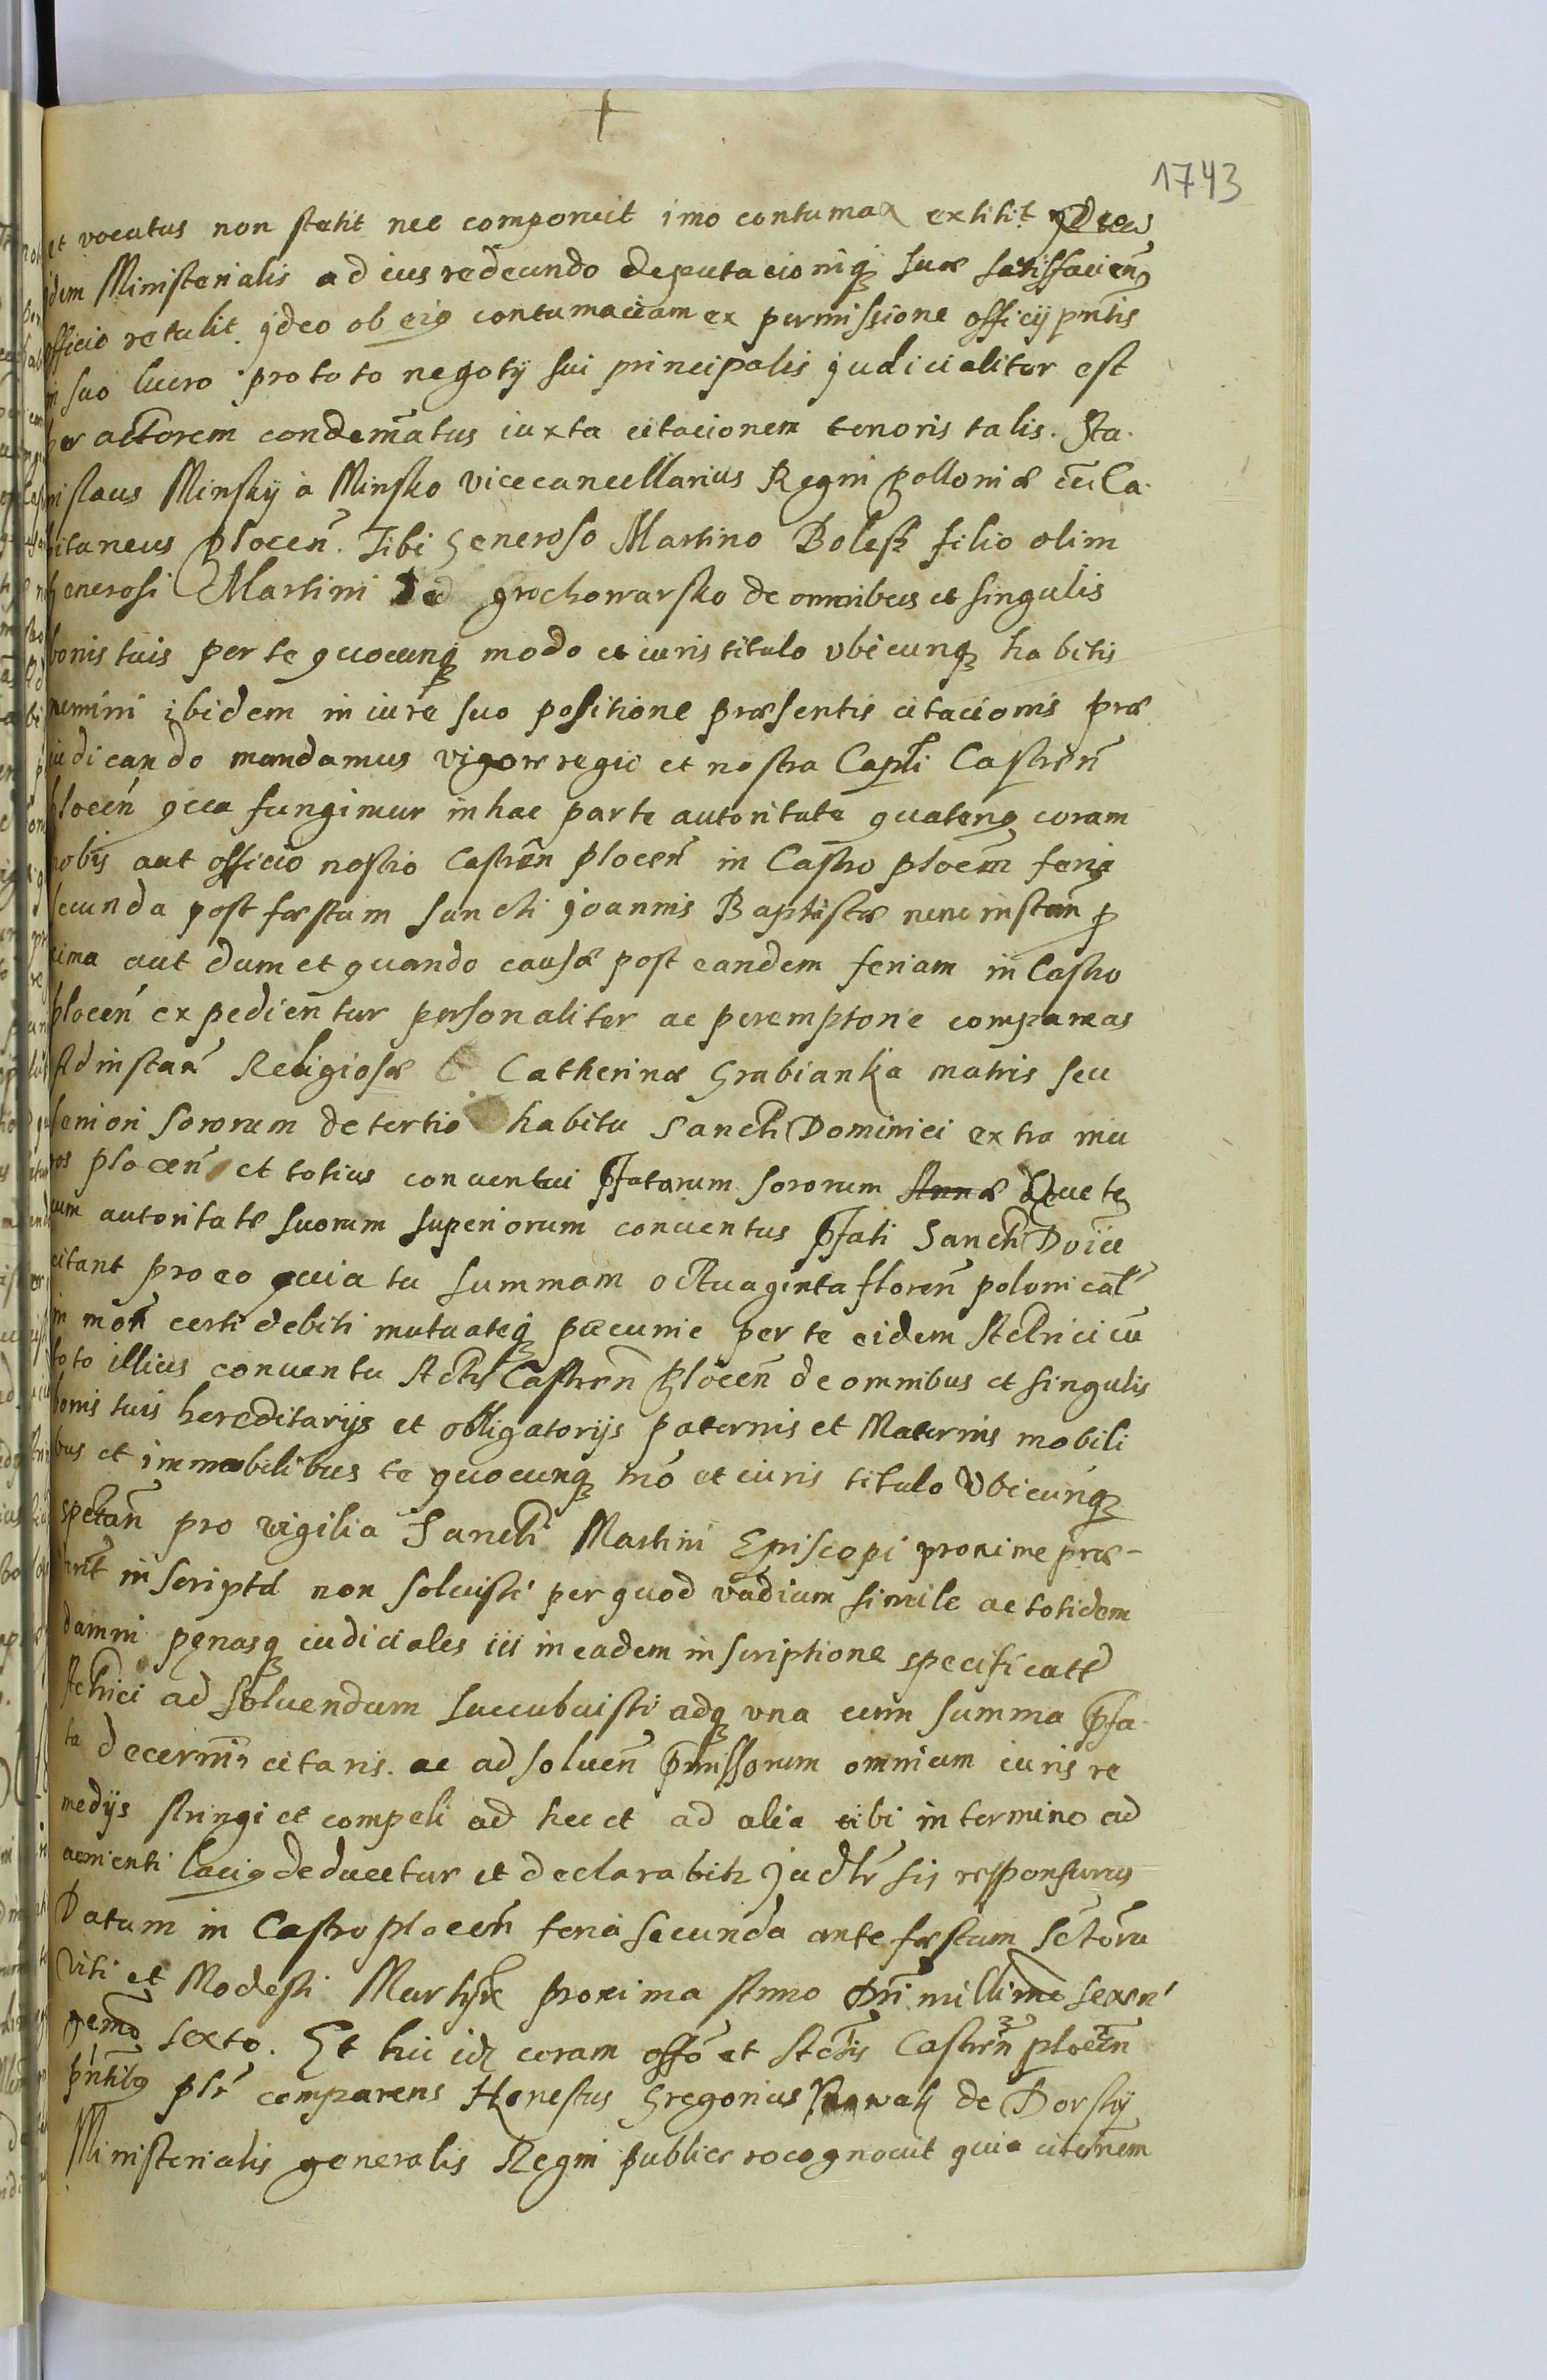 1743
et vocatus non stetit nec comparuit imo contumax extitit
idem Ministerialis ad ius redeundo deputacioniq suæ satisfacien̄
officio retulit. jdeo ob eiꝯ contumaciam ex permissione officij pn̄tis
in suo lucro pro toto negotij sui principalis judicialiter est
per actorem condem̄atus iuxta citacionem tenoris talis. Sta
nislaus Minskÿ à Minsko vicecancellarius Regni Polloniæ Ca
pitaneus Plocen̄. Tibi Generoso Martino Bolesz filio olim
Generosi Martini de Grochowarsko de omnibus et singulis
bonis tuis per te quocunq modo et iuris titulo vbicunq habitis
nemini ibidem in iure suo positione præsentis citacionis præ
iudicando mandamus vigore regia et nostra Capt̄i Castren̄
plocen̄ qua fungimur in hac parte autoritate quatenꝯ coram
nobis aut officio nostro Castren̄ plocen̄ in Castro plocen̄ feria
secunda post fæstum Sancti Joannis Baptistæ nunc instan̄ p
xima aut dum et quando causæ post eandem feriam in Castro
plocen̄ expedientur personaliter ac peremptorie compareas
Ad instan̄ Religiosæ Catherinæ Grabianka matris seu
seniori sororum de tertio habitu Sancti Dominici extra mu
ros plocen̄ et totius conuentui p̄fatarum sororum Annæ Quete
cum autoritate suorum superiorum conuentus p̄fati Sancti Doīci
citant pro eo quia tu summam octuaginta floren̄ polonical̄
in mon̄ certi debiti mutuateq pæcunie per te eidem Actrici cū
toto illius conuentu Actis Castren̄ Plocen̄ de omnibus et singulis
bonis tuis hereditarijs et obligatorijs paternis et Maternis mobili
bus et immobilibus te quocunq mō et iuris titulo vbicunq
spectan̄ pro vigilia Sancti Martini Episcopi proxime præ-
terit̄ inscriptā non soluisti per quod vadium simile ac totidem
damni penasq iudiciales iii in eadem inscriptione specificat̄
Actrici ad soluendum succubuisti adq vna cum summa p̄fa
ta decerni citaris. ac ad soluen̄ p̄missorum omnium iuris re
medijs stringi et compeli ad hec et ad alia tibi in termino ad
uenienti laciꝯ deducetur et declarabitz judtr̄ sis responsurus
Datum in Castro plocen̄ feria secunda ante fæstum Sctōru
Viti et Modesti Martyr̄ proxima Anno Dn̄i millimo sexen̄
gemō sexto. Et hic idz coram offō et Actis Castren̄ plocen̄
pn̄tibꝯ pl̄r comparens Honestus Gregorius Nowak de Dorskÿ
Ministerialis generalis Regni publice recognouit quia citōnem